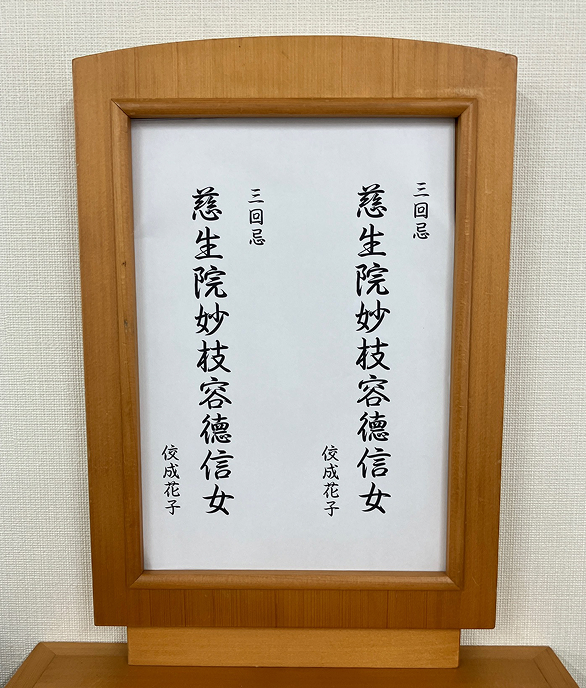 三回忌
慈生院妙枝容德信女
佼成花子
三回忌
慈生院妙枝容德信女
佼成花子